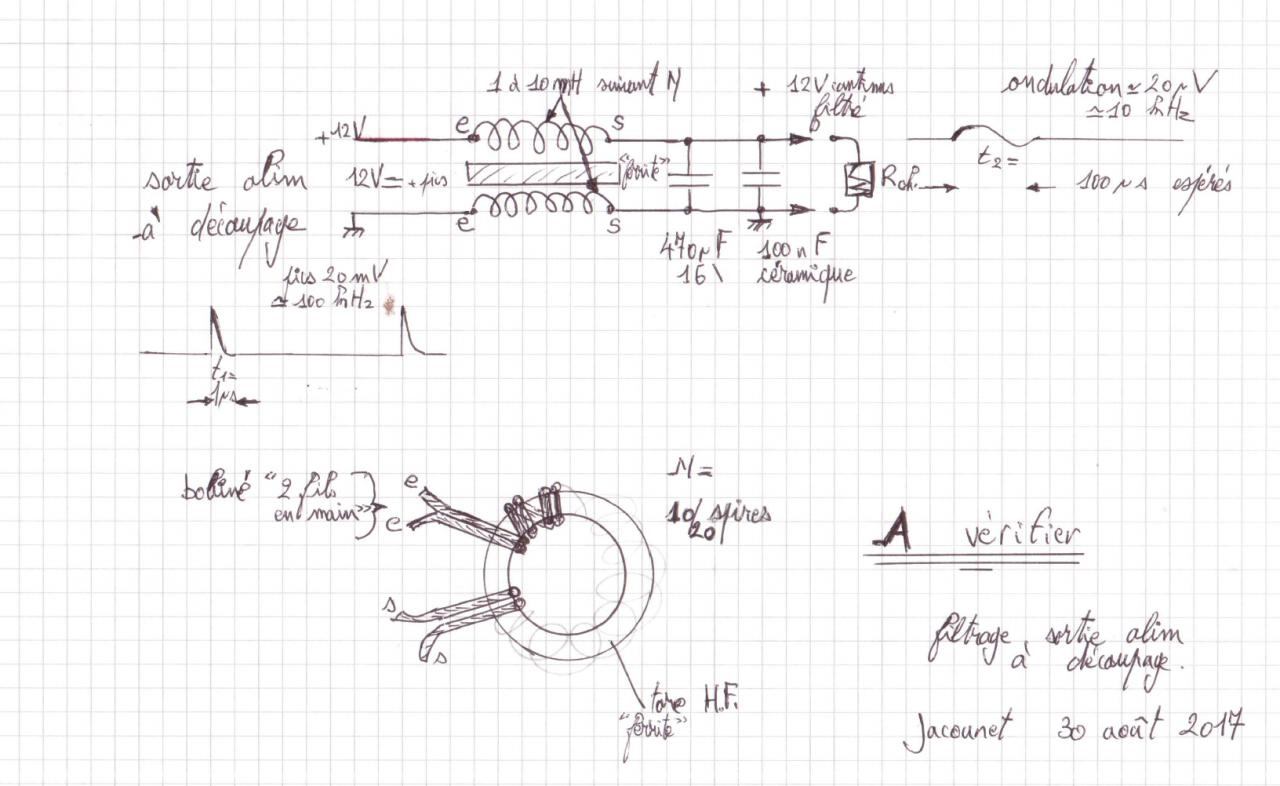 1 à 10 mH suivant N
+12V
e
s
12V = + pics
"ferrite"
e
s
sortie alim
à découpage
pics 20 mV
≃ 100 kHz
t1 =
1µs
470µF
16V
100 nF
céramique
+ 12V continu
filtré
Rch.
ondulation ≃ 20µV
≃ 10 kHz
t2 =
100 µs espérés
bobiné "2 fils
en main"
e
e
s
s
N =
10/20 spires
tore H.F.
"ferrite"
A vérifier
filtrage, sortie alim
à découpage.
Jacounet 30 août 2017